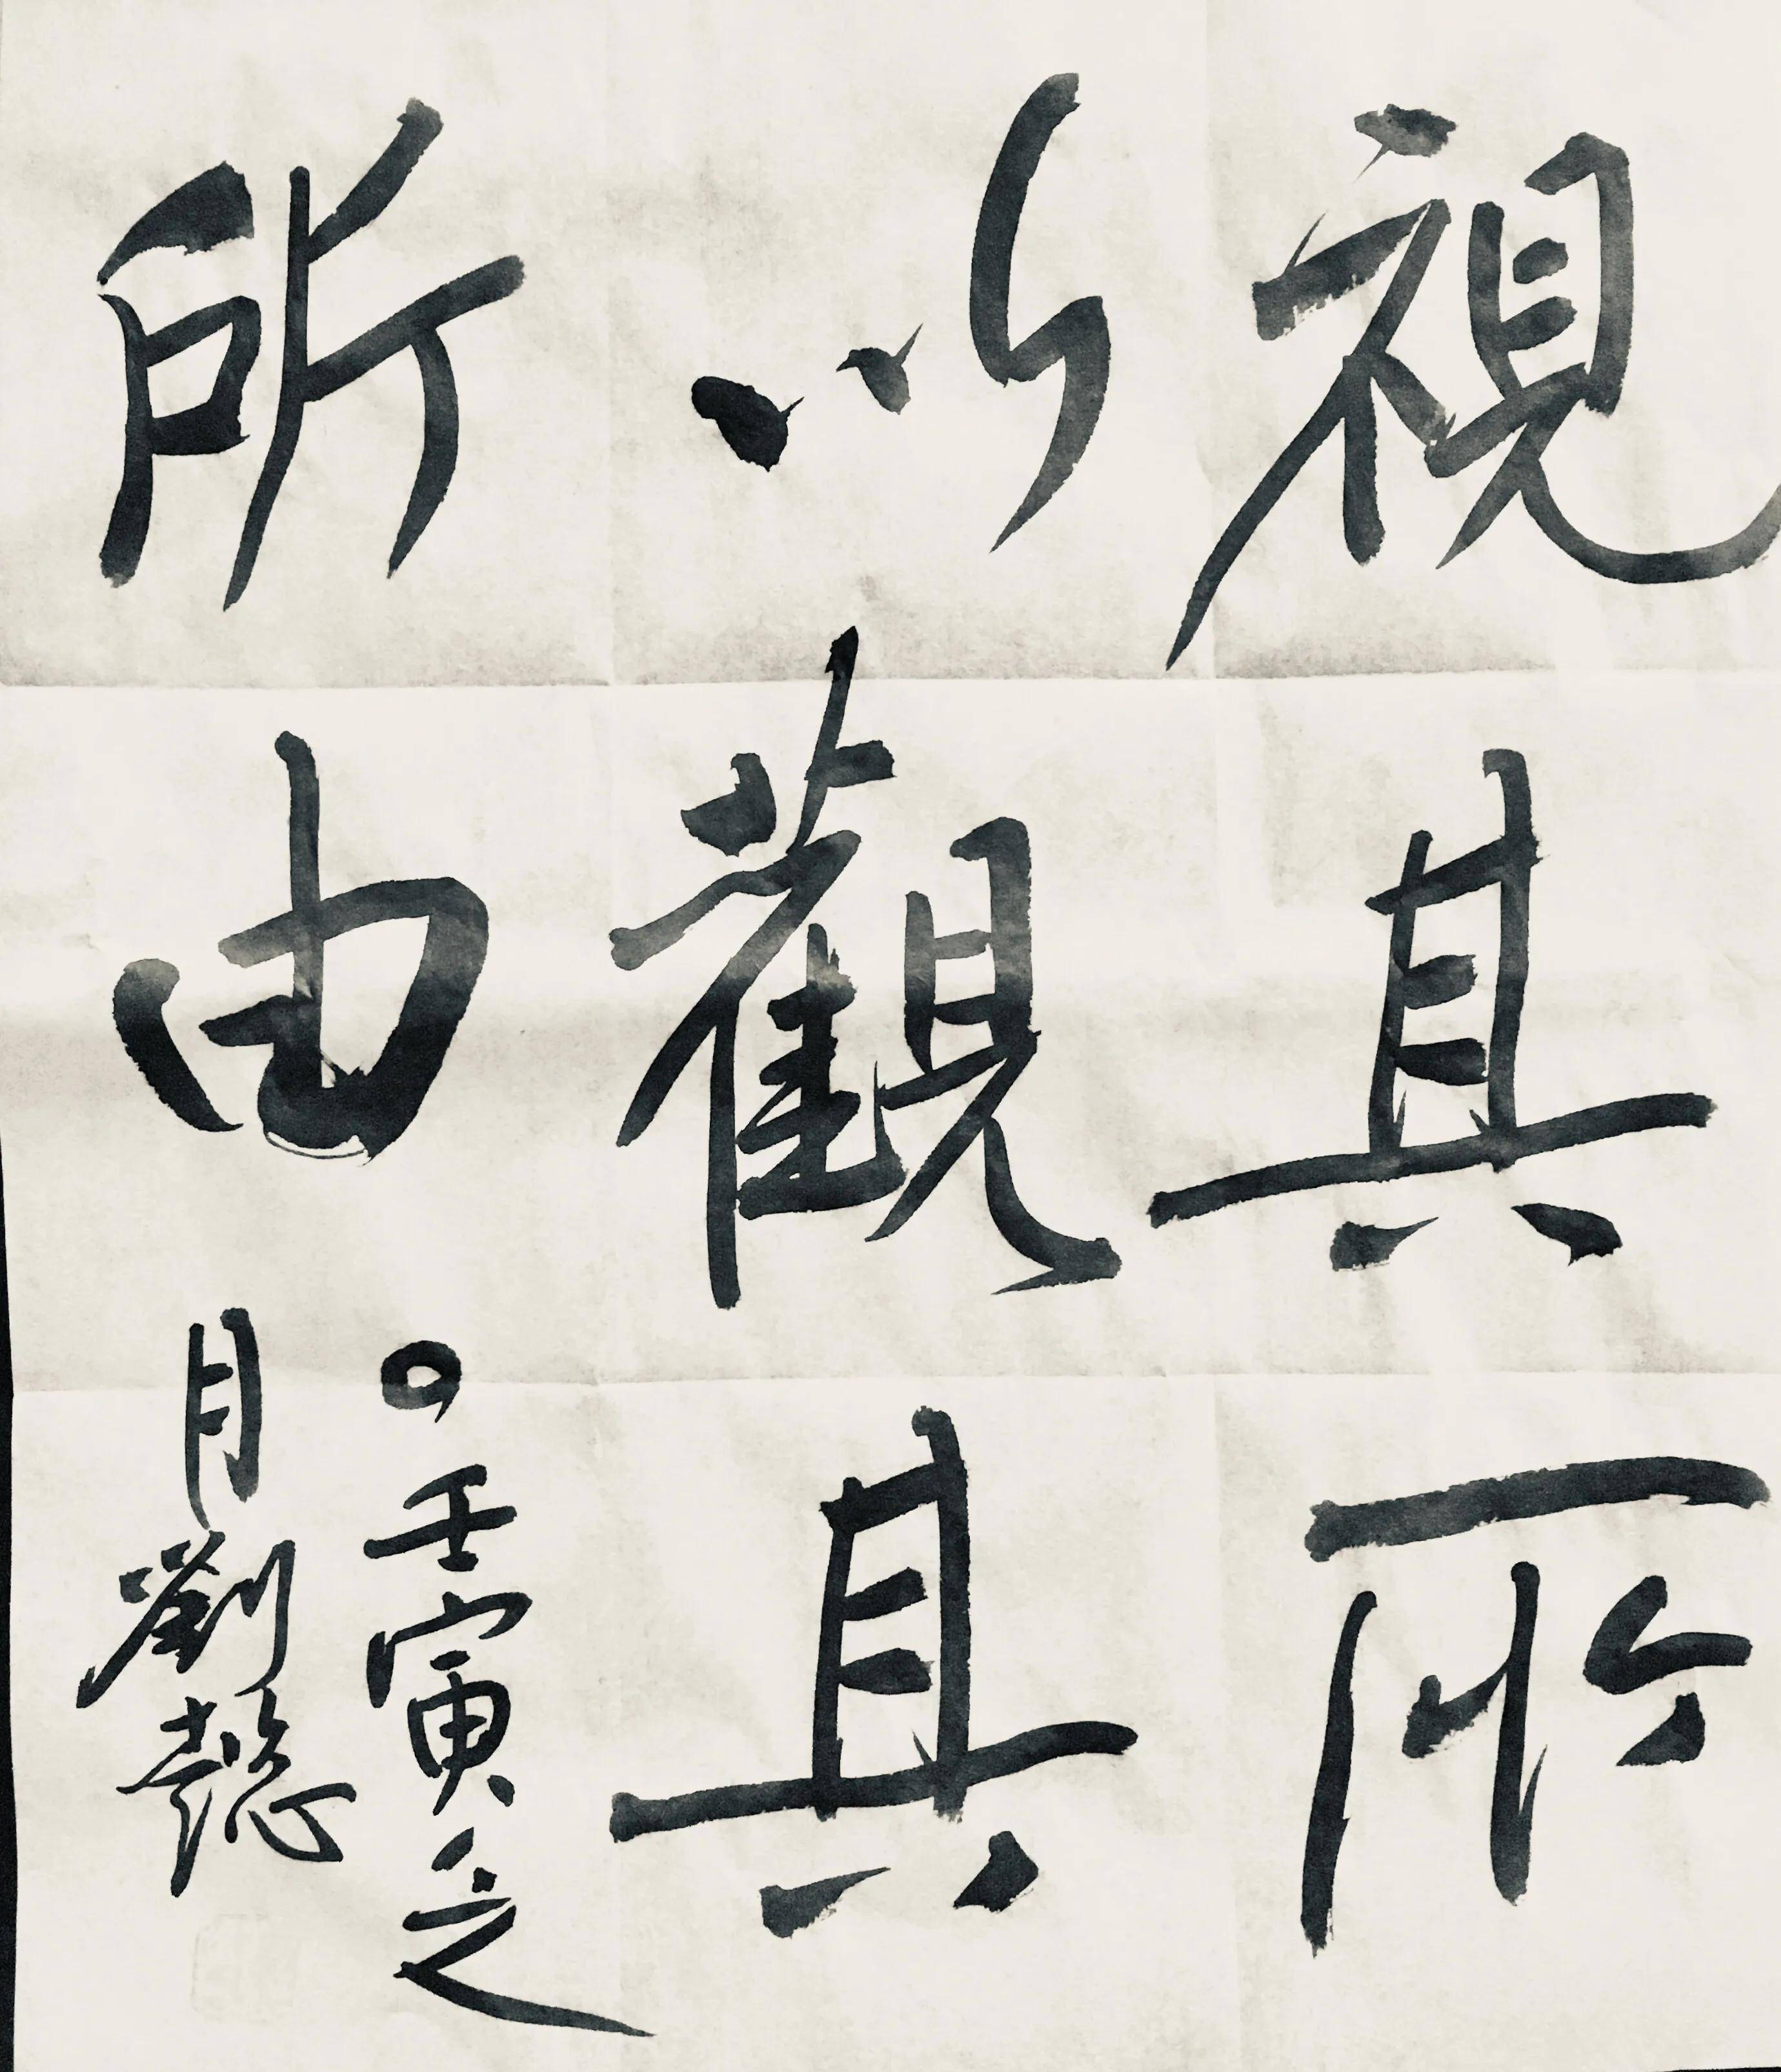 視其所
以觀其
所由
。壬寅之
月劉懿